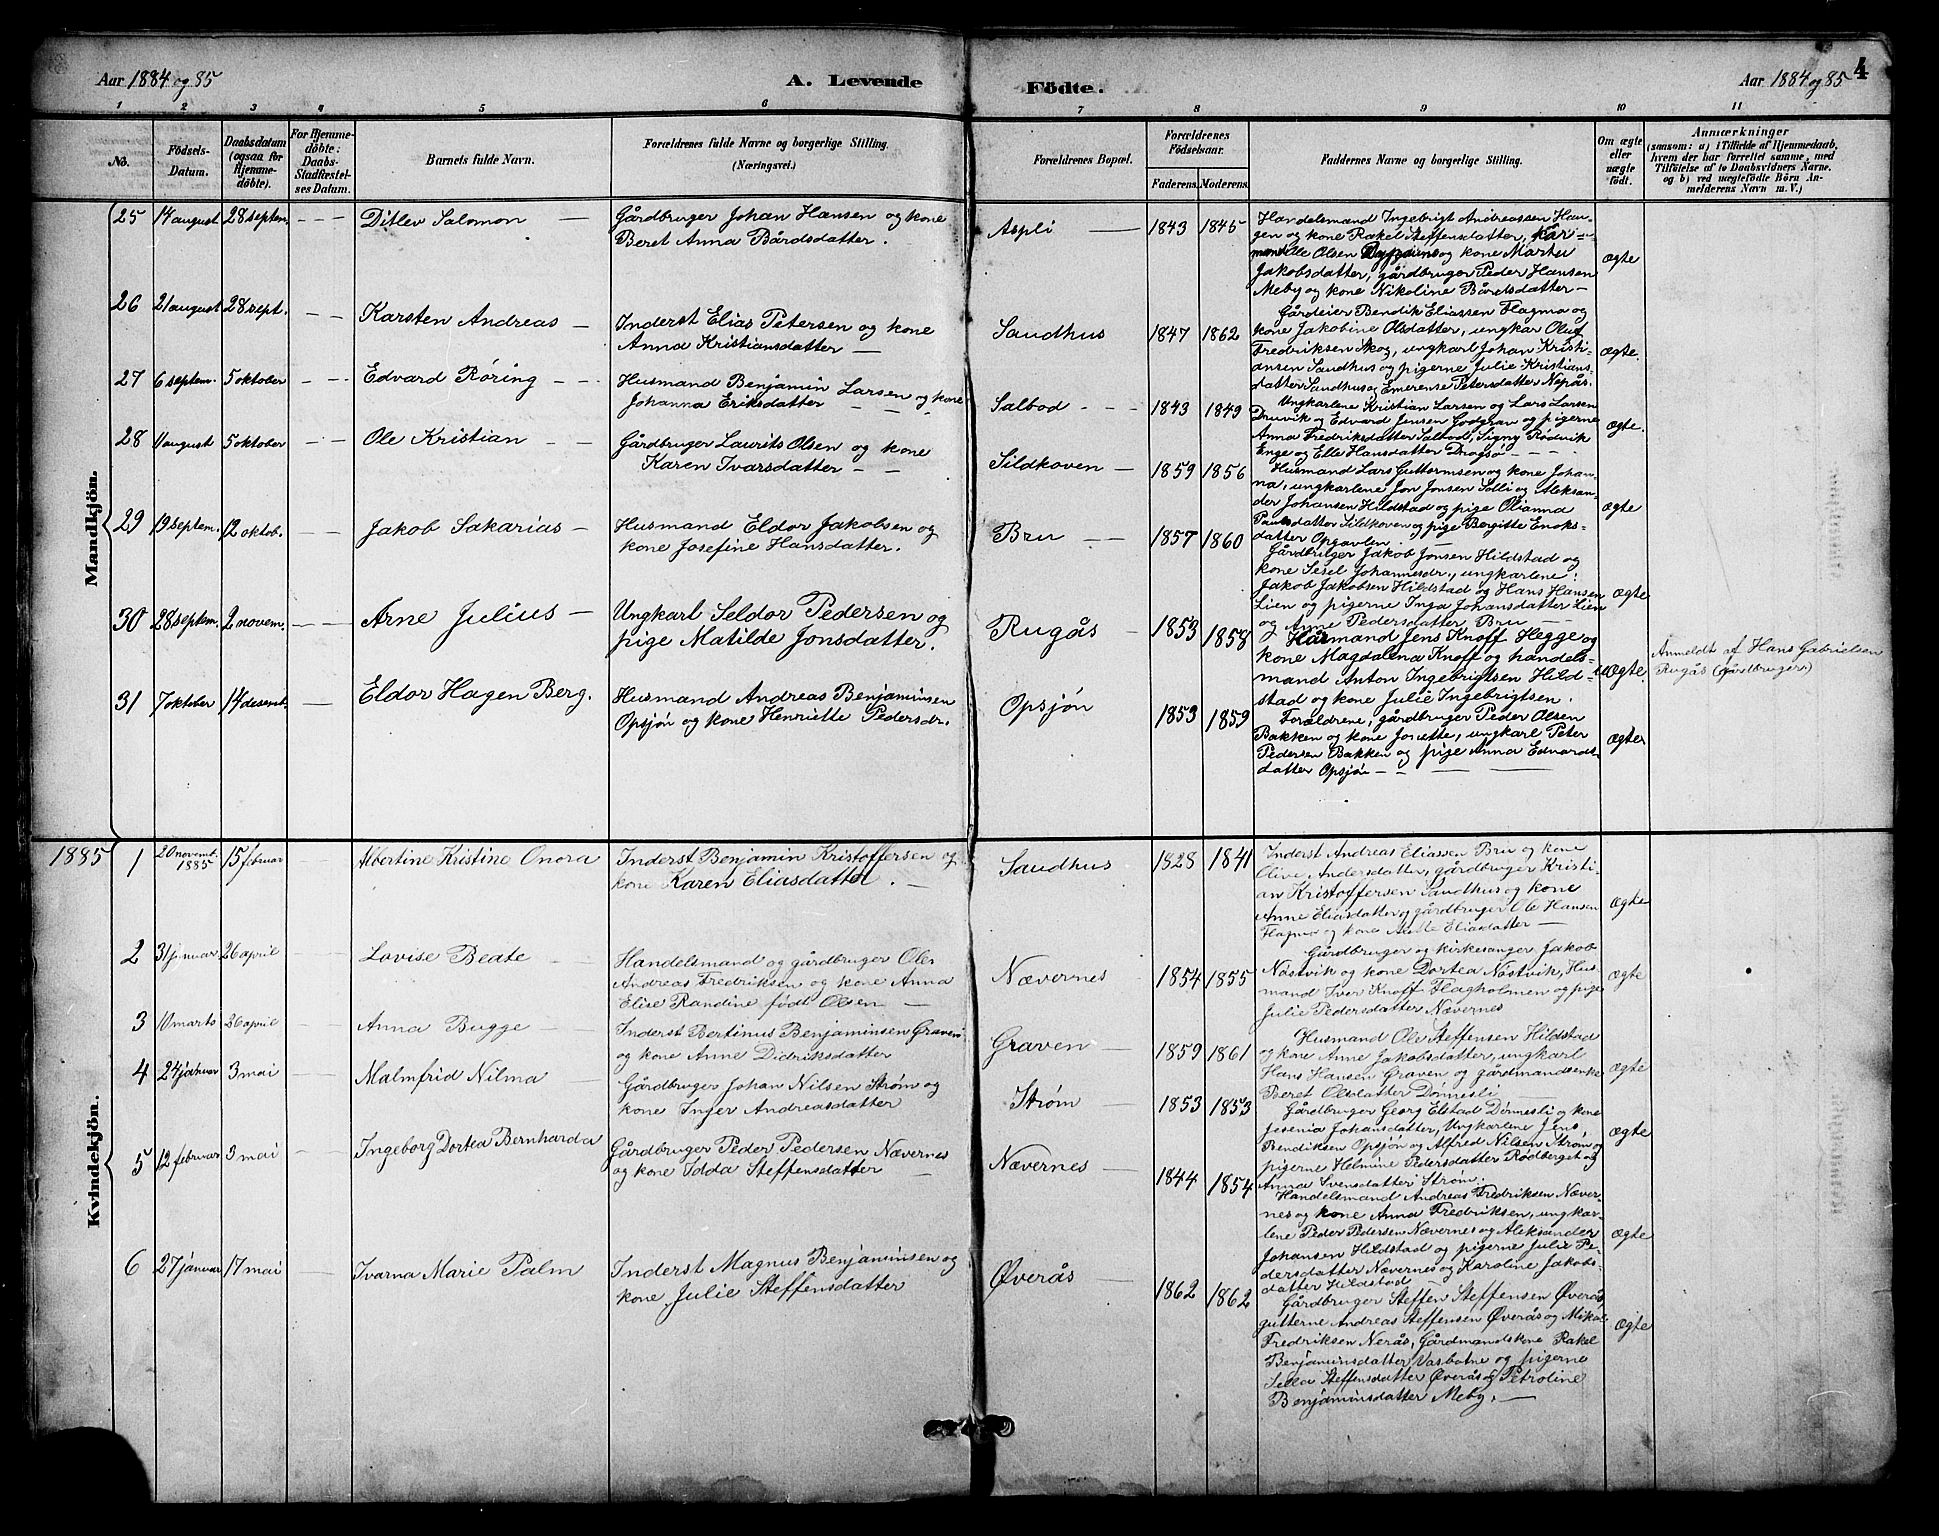 Aar 1884 og 85
A. Levende Födte.
Aar 1884 og 85
4
1 2 3 4 5 6 7 8 9 10 11
No.
Födsels-Datum.
Daabsdatum (ogsaa for Hjemme-döbte).
For Hjemme-döbte: Daabs-Stadfæstel-ses Datum.
Barnets fulde Navn.
Forældrenes fulde Navne og borgerlige Stilling.
(Næringsvei.)
Forældrenes Bopæl.
Forældrenes Födselsaar.
Faderens. Moderens.
Faddernes Navne og borgerlige Stilling.
Om ægte eller uægte födt.
Anmærkninger
(saasom: a) i Tilfælde af Hjemmedaab,
hvem der har forrettet samme, med
Tilföielse af to Daabsvidners Navne,
og b) ved uægtefödte Börn An-
melderens Navn m. V.)
Mandkjön.
25 14 august 28 septem. - - - Ditlev Salomon —
Gårdbruger Johan Hansen og kone
Beret Anna Bårdsdatter.
Aspli — 1843 1845
Handelsmand Ingebrigt Andreassen Hau-
gen og kone Rakel Steffensdatter, Kår-
mand Elle Olsen og kone Marte
Jakobsdatter, gårdbruger Peder Hansen
Meby og kone Nikoline Bårdsdatter —
ægte
26 21 august 28 sept. - - Karsten Andreas —
Inderst Elias Petersen og kone
Anna Kristiansdatter —
Sandhus 1847 1862
Gårdeier Bendik Eliassen Flagma og
kone Jakobine Olsdatter, ungkar Oluf
Fredriksen Skog, ungkarl Johan Kristi-
ansen Sandhus og pigerne Julie Kristians-
datter Sandhus og Emerense Petersdatter Nepås.
ægte.
27 6 septem. 5 oktober - - - Edvard Röring - - -
Husmand Benjamin Larsen og kone
Johanna Eriksdatter - - -
Salbod - - - 1843 1849
Ungkarlene Kristian Larsen og Lars Larsen
Druvik og Edvard Jensen Godgrav og pigerne
Anna Fredriksdatter Salbod, Signy Rödvik
Enge og Elle Hansdatter Drogsö - - - -
ægte.
28 11 august 5 oktober - - Ole Kristian - -
Gårdbruger Laurits Olsen og kone
Karen Ivarsdatter - -
Sildkoven — 1859 1856
Husmand Lars Guttormsen og kone Johan-
na, ungkarlene Jon Jonsen Solli og Aleksan-
der Johansen Hildstad og pige Ovanna
Paulsdatter Sildkoven og pige Bergitte Enoks-
datter Opgavlen —
ægte
29 19 septem. 12 oktob. - - Jakob Sakarias —
Husmand Eldor Jakobsen og
kone Josefine Hansdatter.
Bru - - 1857 1860
Gårdbruger Jakob Jonsen Hildstad og
kone Sesel Johannesdr., ungkarlene:
Jakob Jakobsen Hildstad og Hans Hansen
Lien og pigerne Inga Johansdatter Lien
og Anne Pedersdatter Bru - -
ægte
30 28 septem. 2 novem. - - Arne Julius —
Ungkarl Seldor Pedersen og
pige Matilde Jonsdatter.
Rugås - 1853 1858
Kårmand Jens Knoff Hegge og
kone Magdalena Knoff og handels-
mand Anton Ingebrigtsen Hild-
stad og kone Julie Ingebrigtsen.
uægte.
Anmeldt af Hans Gabrielsen
Rugås (gårdbruger)
31 7 oktober 14 desemb. — Eldor Hagen Berg.
Husmand Andreas Benjaminsen
Opsjön og kone Henriette Pedersdr.
Opsjön 1853 1859
Forældrene, gårdbruger Peder Olsen
Bakken og kone Josette, ungkarl Peter
Pedersen Bakken og pige Anna Edvards-
datter Opsjön - - — —
ægter
1885
Kvindekjön.
1 20 novemb. 1885 15 februar — Albertine Kristine Onora
Inderst Benjamin Kristoffersen og
kone Karen Eliasdatter. —
Sandhus 1828 1841
Inderst Andreas Eliassen Bru og kone
Olive Andersdatter, gårdbruger Kristi-
an Kristoffersen Sandhus og kone
Anne Eliasdatter og gårdbruger Ole Hansen
Flagma og kone Eliasdatter —
ægte
2 31 januar 26 april — Lovise Beate —
Handelsmand og gårdbruger Ole
Andreas Fredriksen og kone Anna
Elise Randine født Olsen —
Nævernes - 1854 1855
Gårdbruger og kirkesanger Jakob
Nöstvik og kone Dortea Nöstvik, Hus-
mand Iver Knoff Hagholmen og pige
Julie Pedersdatter Nævernes
ægte
3 10 marts 26 april — Anna Bugge —
Inderst Bertinus Benjaminsen Graven
og kone Anne Didriksdatter
Graven — 1859 1861
Husmand Ole Steffensen Hildstad
og kone Anne Jakobsdatter, ungkarl
Hans Hansen Graven og gårdmandsenke
Beret Olsdatter Dönnesli —
ægte
4 24 januar 3 mai — Malmfrid Nilma —
Gårdbruger Johan Nilsen Ström og
kone Inger Andreasdatter
Ström — 1853 1853
Gårdbruger Georg Elstad Dönnesli og kone
Jesenia Johansdatter, Ungkarlene Jens
Bendiksen Opsjön og Alfred Nilsen Ström og
pigerne Helmine Pedersdatter Rödberget og
Anna Svensdatter Ström.
ægte
5 12 februar 3 mai — Ingeborg Dortea Bernharda
Gårdbruger Peder Pedersen Nævernes
og kone Idda Steffensdatter —
Nævernes — 1844 1854
Handelsmand Andreas Fredriksen Næver-
nes og kone Anna Fredriksen, ungkar-
lene Peder Pedersen Nævernes og Aleksander
Johansen Hildstad og pigerne Julie Pe-
dersdatter Nævernes og Karoline Jakobs-
datter Hildstad
ægte
6 27 januar 17 mai — Ivarna Marie Palm
Inderst Magnus Benjaminsen og
kone Julie Steffensdatter
Överås — 1862 1862
Gårdbruger Steffen Steffensen Överås,
gutterne Andreas Steffensen Överås og Mikal
Fredriksen Nerås, Gårdmandskone Rakel
Benjaminsdatter Vasbotne og pigerne
Sella Steffensdatter Överås og Petroline
Benjaminsdatter Meby. —
ægte